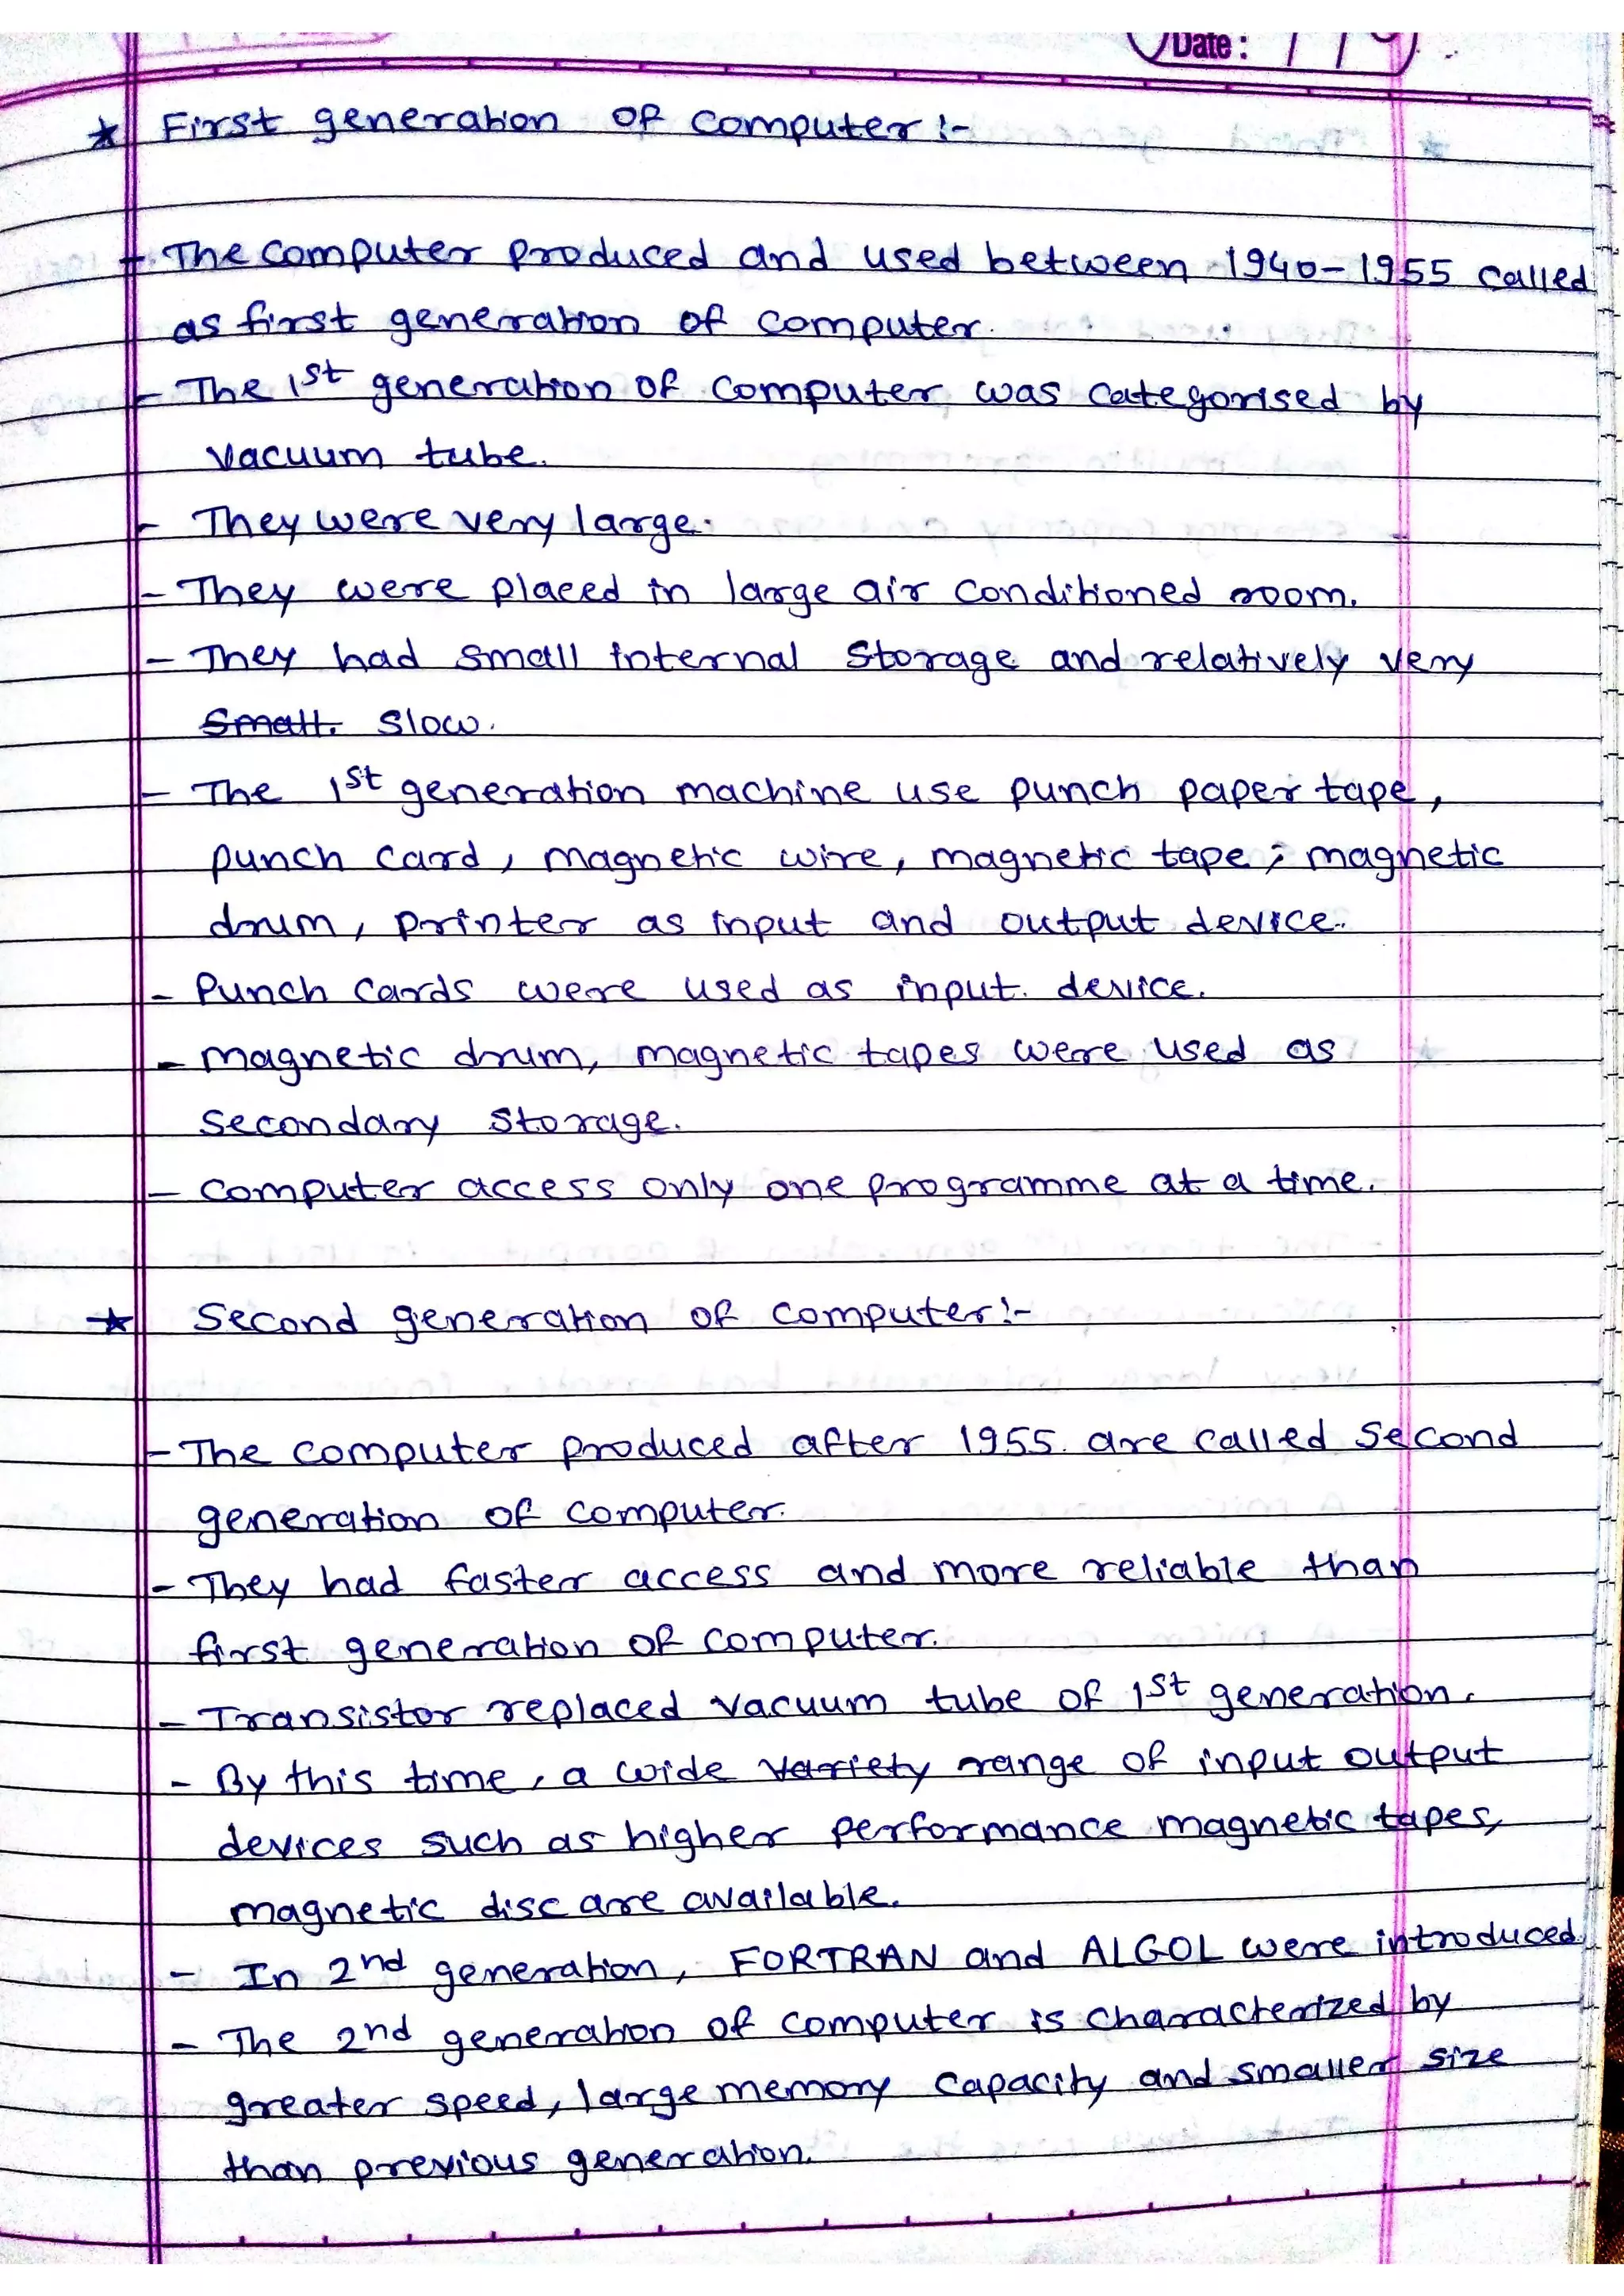 Date: / /
* First generation of computer :-
- The computer produced and used between 1940-1955 called
as first generation of computer.
- The 1st generation of computer was categorised by
vacuum tube.
- They were very large.
- They were placed in large air conditioned room.
- They had small internal storage and relatively very
small. slow.
- The 1st generation machine use punch paper tape,
punch card, magnetic wire, magnetic tape, magnetic
drum, printer as input and output device.
- Punch cards were used as input. device.
- magnetic drum, magnetic tapes were used as
secondary storage.
- computer access only one programme at a time.
* Second generation of computer:-
- The computer produced after 1955. are called second
generation of computer.
- They had faster access and more reliable than
first generation of computer.
- Transistor replaced vacuum tube of 1st generation.
- By this time, a wide variety range of input output
devices such as higher performance magnetic tapes,
magnetic disc are available.
- In 2nd generation, FORTRAN and ALGOL were introduced.
- The 2nd generation of computer is characterized by
greater speed, large memory capacity and smaller size
than previous generation.